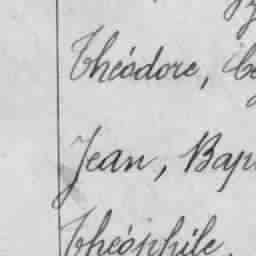 Théodore,
Jean, Bap
Théophile